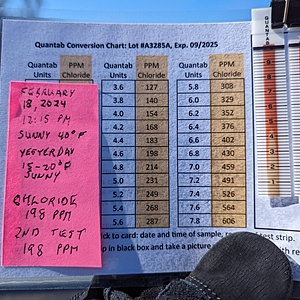 Quantab Conversion Chart: Lot #A3285A, Exp. 09/2025
Quantab Units PPM Chloride Quantab Units PPM Chloride Quantab Units PPM Chloride
3.6 127 5.8 308
3.8 140 6.0 329
4.0 154 6.2 352
4.2 168 6.4 376
4.4 183 6.6 402
4.6 198 6.8 430
4.8 214 7.0 459
5.0 231 7.2 491
5.2 249 7.4 526
5.4 268 7.6 564
5.6 287 7.8 606
FEBRUARY
18, 2024
12:15 PM
SUNNY 40°F
YESTERDAY
15-20°F
SUNNY
CHLORIDE
198 PPM
2ND TEST
198 PPM
ck to card: date and time of sample,
test strip.
p in black box and take a picture
QUANTAB
9
8
7
6
5
4
3
2
1